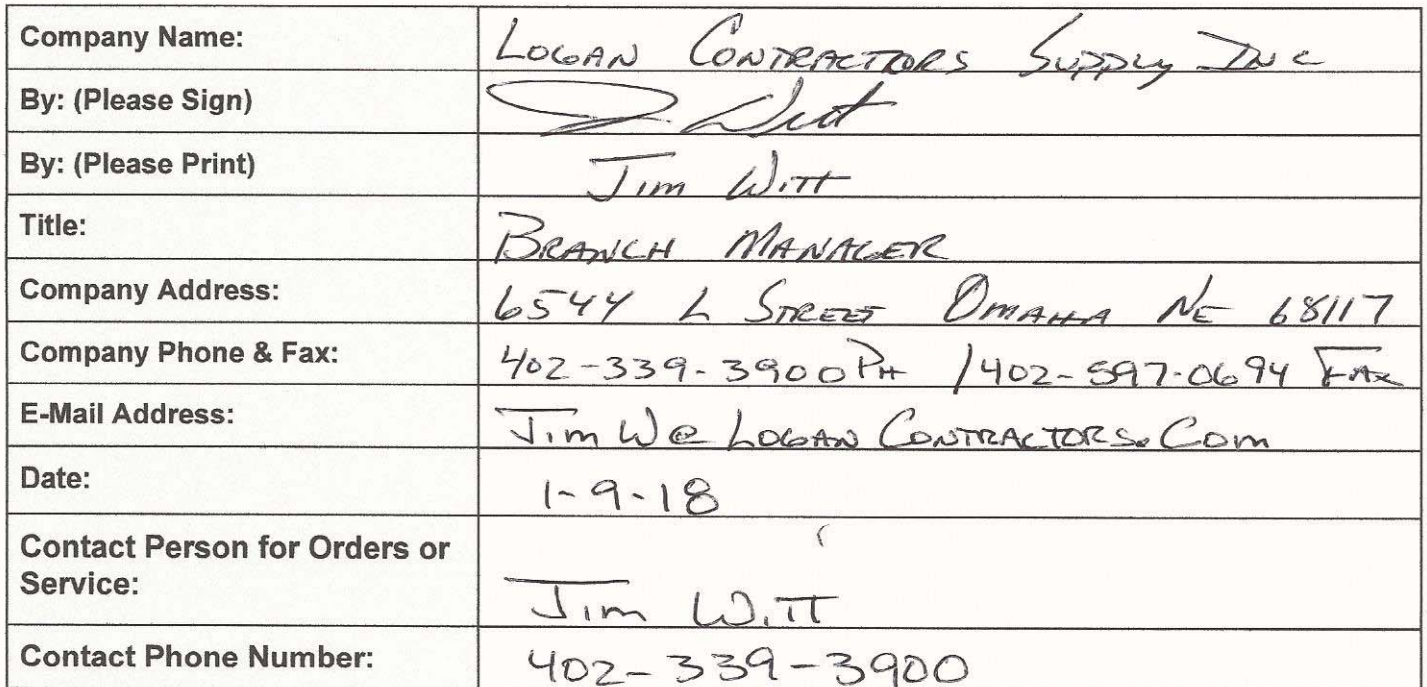 Company Name: LOGAN CONTRACTORS SUPPLY INC
By: (Please Sign) J Witt
By: (Please Print) Jim Witt
Title: BRANCH MANAGER
Company Address: 6544 L STREET OMAHA NE 68117
Company Phone & Fax: 402-339-3900 PH / 402-597-0694 FAX
E-Mail Address: Jim W@ LOGAN CONTRACTORS.Com
Date: 1-9-18
Contact Person for Orders or
Service: Jim Witt
Contact Phone Number: 402-339-3900